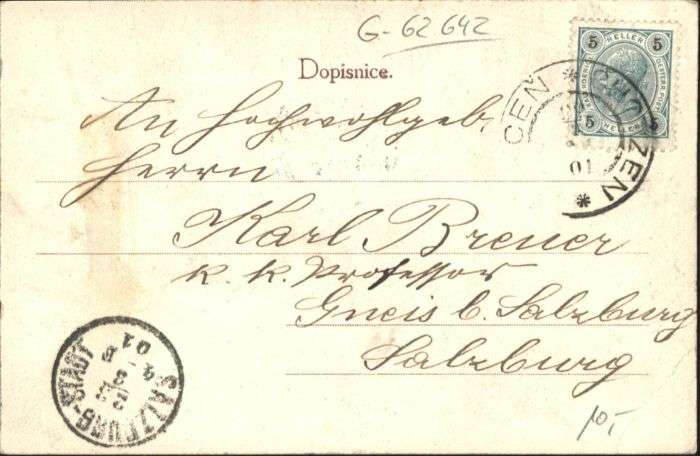 G-62642
Dopisnice.
5 HELLER 5
5 HELLER 5
CEN * ZEN *
01
An Hochwohlgeb.
Herrn
Karl Breuer
k. k. Professor
Gneis b. Salzburg
Salzburg
SALZBURG-STADT
01
10,-